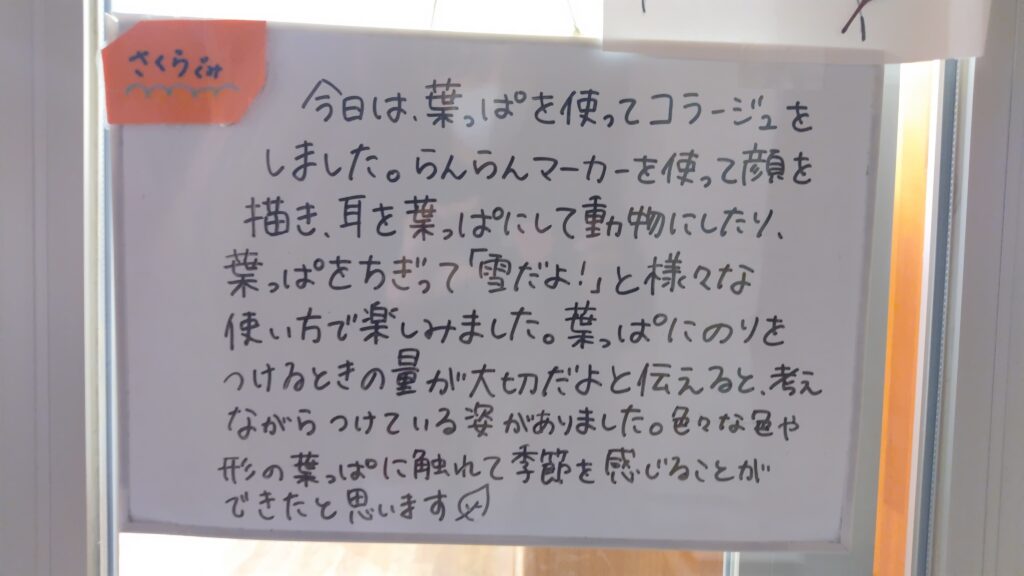 さくらぐみ
今日は、葉っぱを使ってコラージュを
しました。らんらんマーカーを使って顔を
描き、耳を葉っぱにして動物にしたり、
葉っぱをちぎって「雪だよ！」と様々な
使い方で楽しみました。葉っぱにのりを
つけるときの量が大切だよと伝えると、考え
ながらつけている姿がありました。色々な色や
形の葉っぱに触れて季節を感じることが
できたと思います